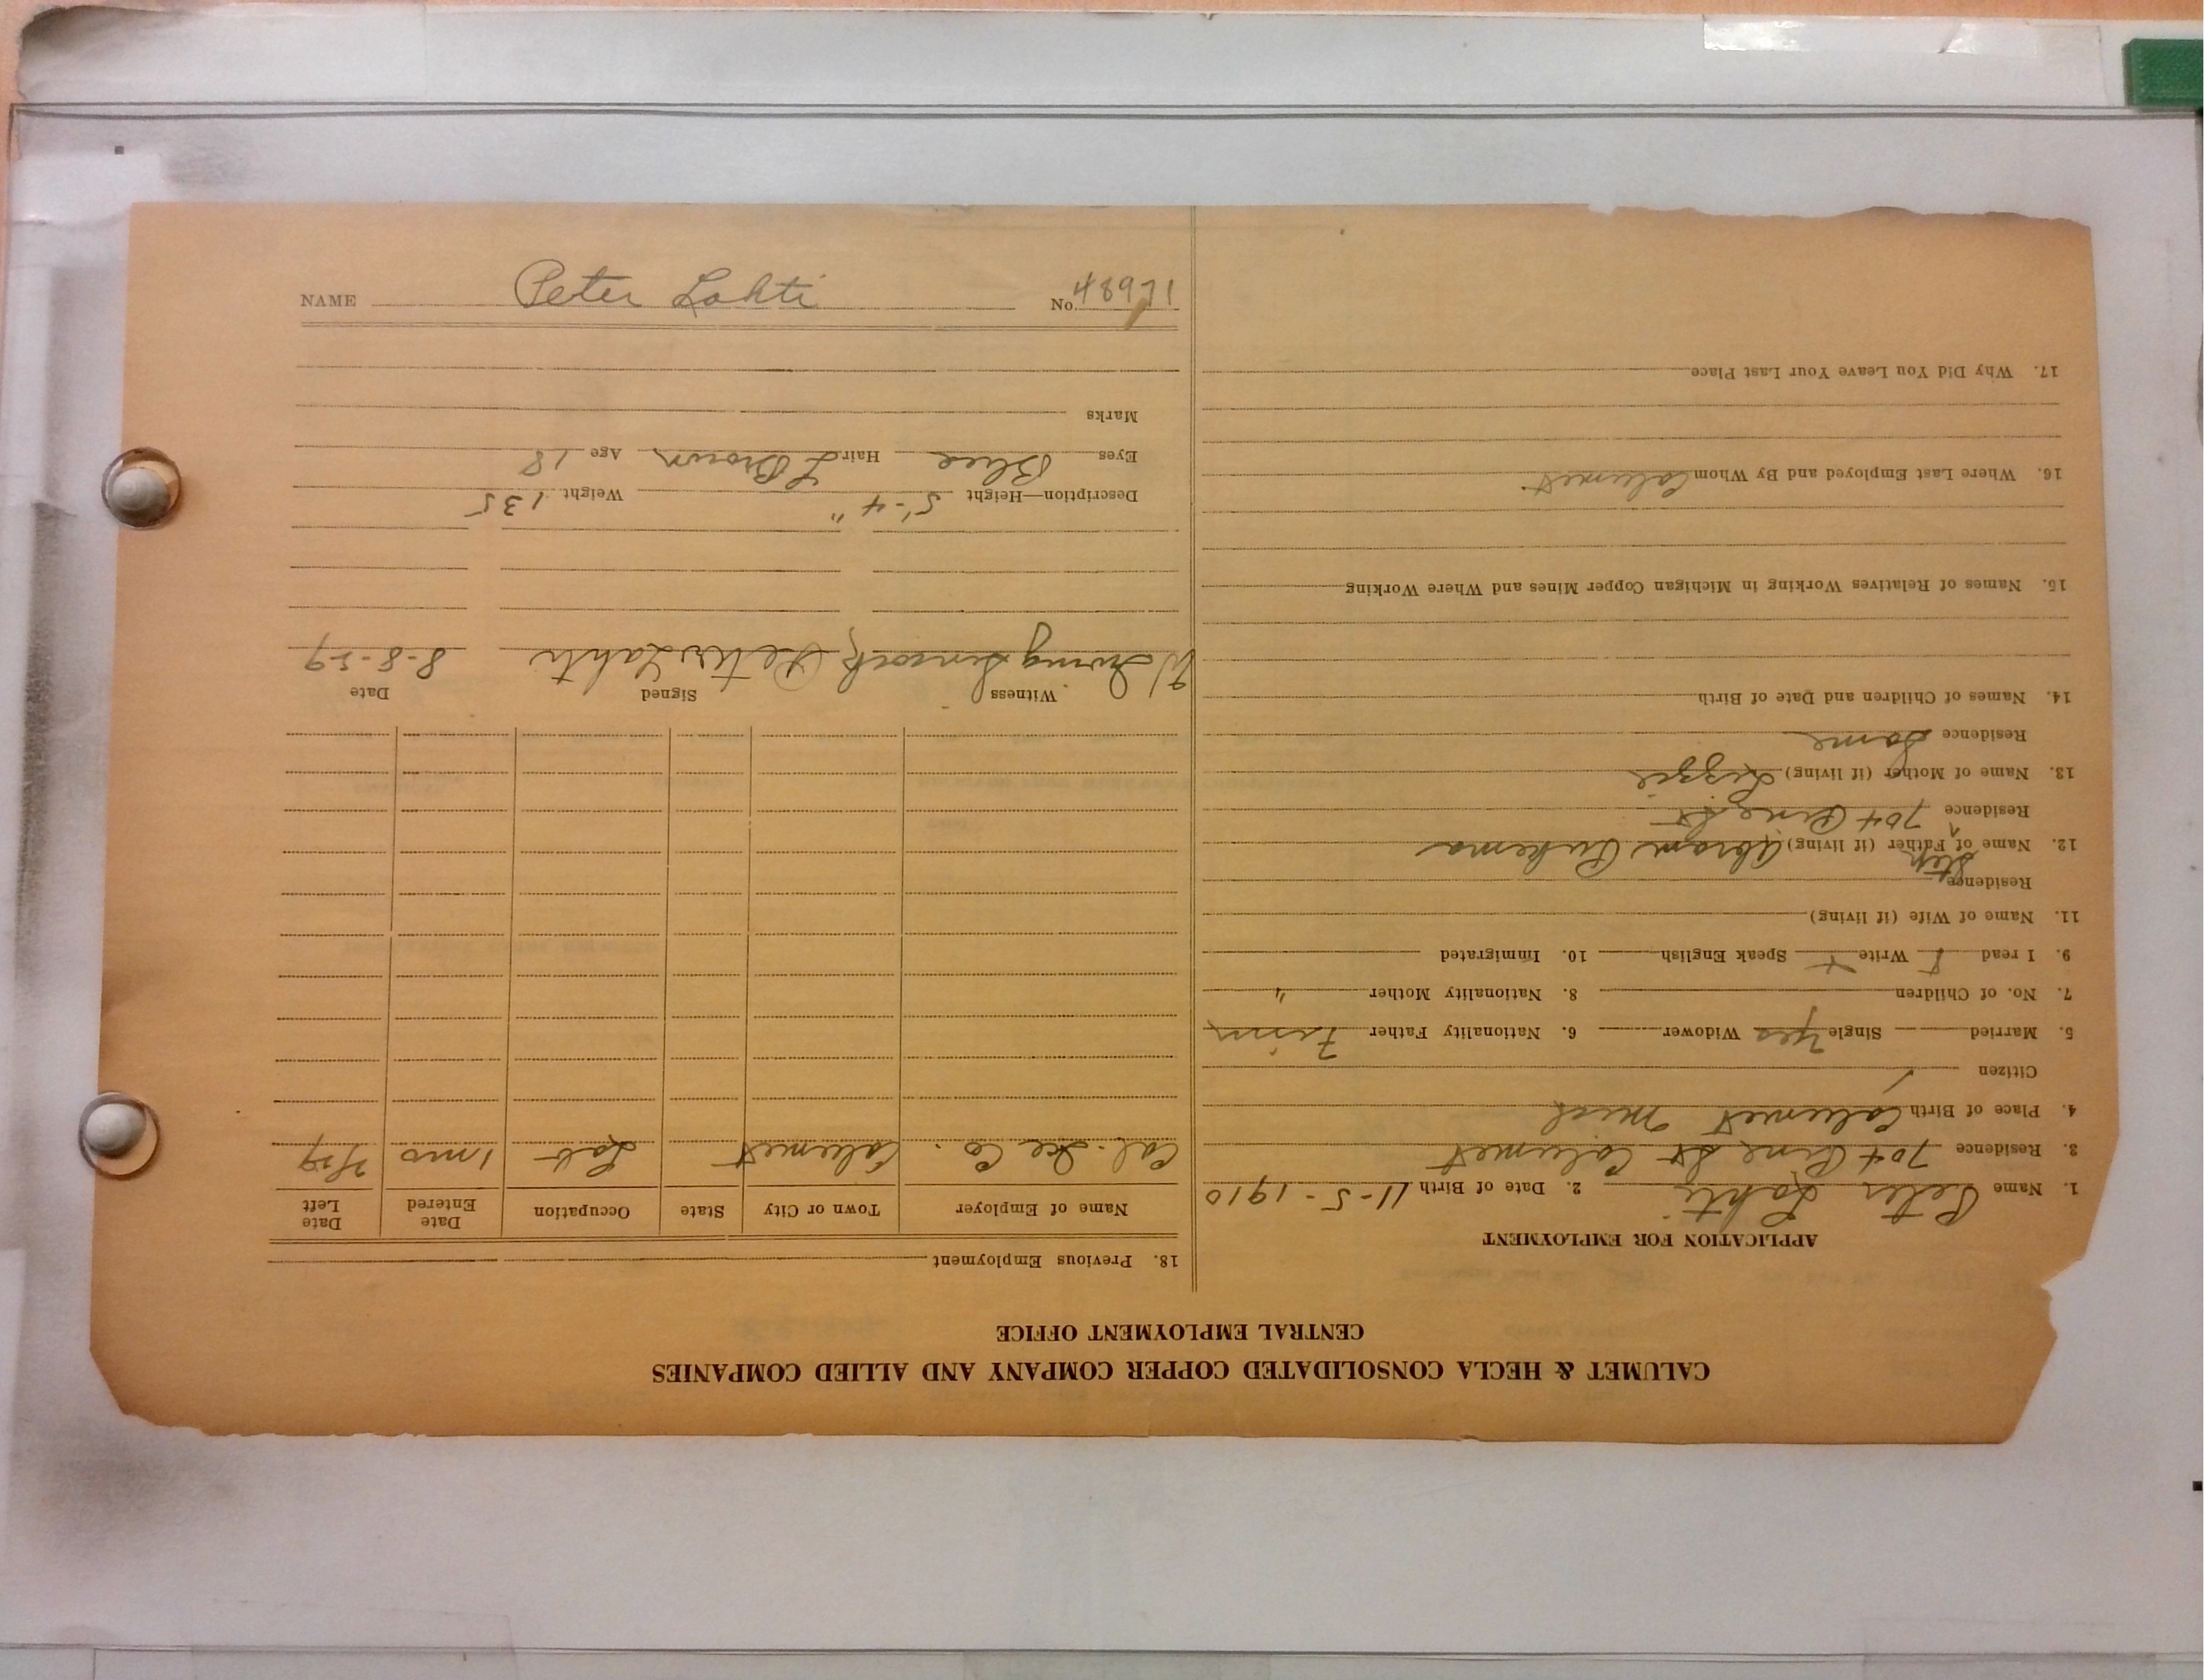 CALUMET & HECLA CONSOLIDATED COPPER COMPANY AND ALLIED COMPANIES
CENTRAL EMPLOYMENT OFFICE
APPLICATION FOR EMPLOYMENT
1. Name Peter Lahti 2. Date of Birth 11-5-1910
3. Residence 704 Pine St Calumet
4. Place of Birth Calumet Mich
Citizen
5. Married Single Yes Widower 6. Nationality Father Finn
7. No. of Children 8. Nationality Mother "
9. I read Write Speak English 10. Immigrated
11. Name of Wife (if living)
Residence
12. Name of Step Father (if living) Abram
Residence 704 Pine St
13. Name of Mother (if living) Lizzie
Residence Same
14. Names of Children and Date of Birth
15. Names of Relatives Working in Michigan Copper Mines and Where Working
16. Where Last Employed and By Whom Calumet
17. Why Did You Leave Your Last Place
18. Previous Employment
Name of Employer Town or City State Occupation Date Entered Date Left
Cal. Ice Co. Calumet Lab 1 mo
Witness Signed Date
Irving Peter Lahti 8-8-29
Description—Height 5'-4" Weight 135
Eyes Blue Hair L Brown Age 18
Marks
NAME Peter Lahti No. 48971